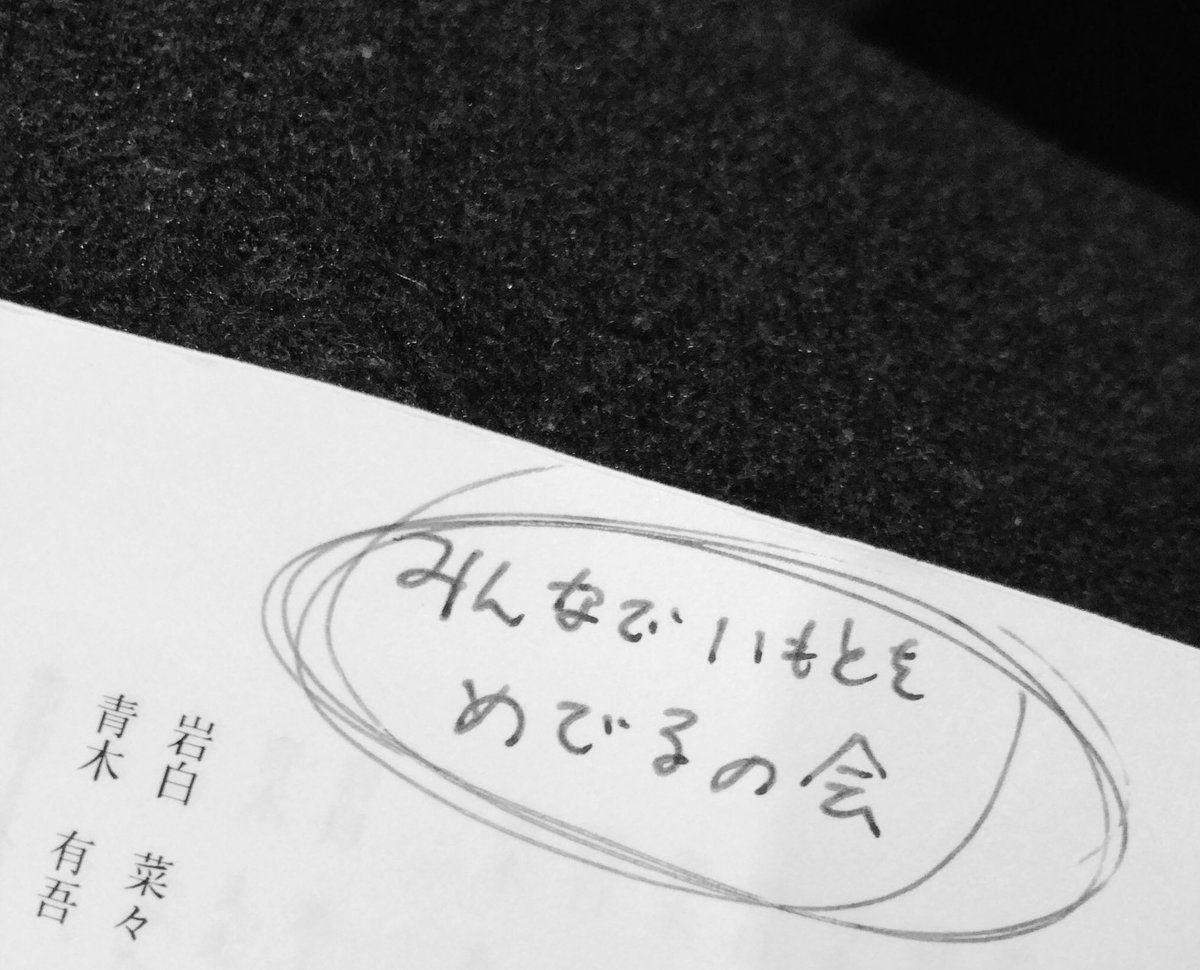 みんなでいもとを
めでるの会
岩白 菜々
青木 有吾